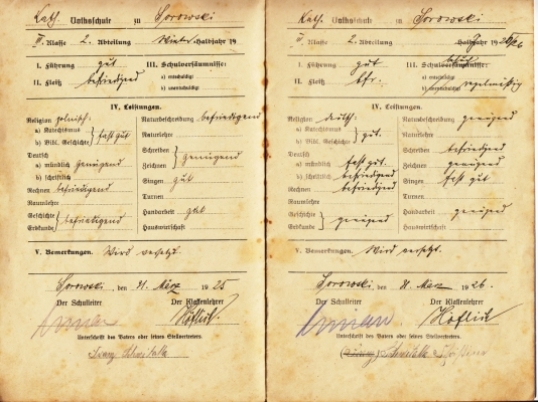 Kath. Volksschule zu Sorowski
Klasse 2. Abteilung Halbjahr 19
I. Führung gut III. Schulversäumnisse:
II. Fleiß befriedigend a) entschuldigt
b) unentschuldigt
IV. Leistungen.
Religion polnisch. Naturbeschreibung befriedigend
a) Katechismus Naturlehre
b) Bibl. Geschichte } fast gut Schreiben
Deutsch Zeichnen } genügend
a) mündlich genügend Singen gut
b) schriftlich Turnen
Rechnen befriedigend
Raumlehre
Geschichte Handarbeit gut
Erdkunde } befriedigend Hauswirtschaft
V. Bemerkungen. Wird versetzt
Sorowski, den 31. März 1925
Der Schulleiter Der Klassenlehrer
Höflich
Unterschrift des Vaters oder seines Stellvertreters.
Kath. Volksschule zu Sorowski
Klasse 2. Abteilung Halbjahr 1925/26
I. Führung gut III. Schulversäumnisse:
II. Fleiß bfr. a) entschuldigt
b) unentschuldigt regelmäßig
IV. Leistungen.
Religion deutsch. Naturbeschreibung genügend
a) Katechismus Naturlehre
b) Bibl. Geschichte } gut. Schreiben befriedigend
Deutsch Zeichnen genügend
a) mündlich fast gut. Singen fast gut
b) schriftlich befriedigend Turnen
Rechnen befriedigend
Raumlehre
Geschichte Handarbeit genügend
Erdkunde } genügend Hauswirtschaft
V. Bemerkungen. Wird versetzt.
Sorowski, den 31. März 1926.
Der Schulleiter Der Klassenlehrer
Höflich
Unterschrift des Vaters oder seines Stellvertreters.